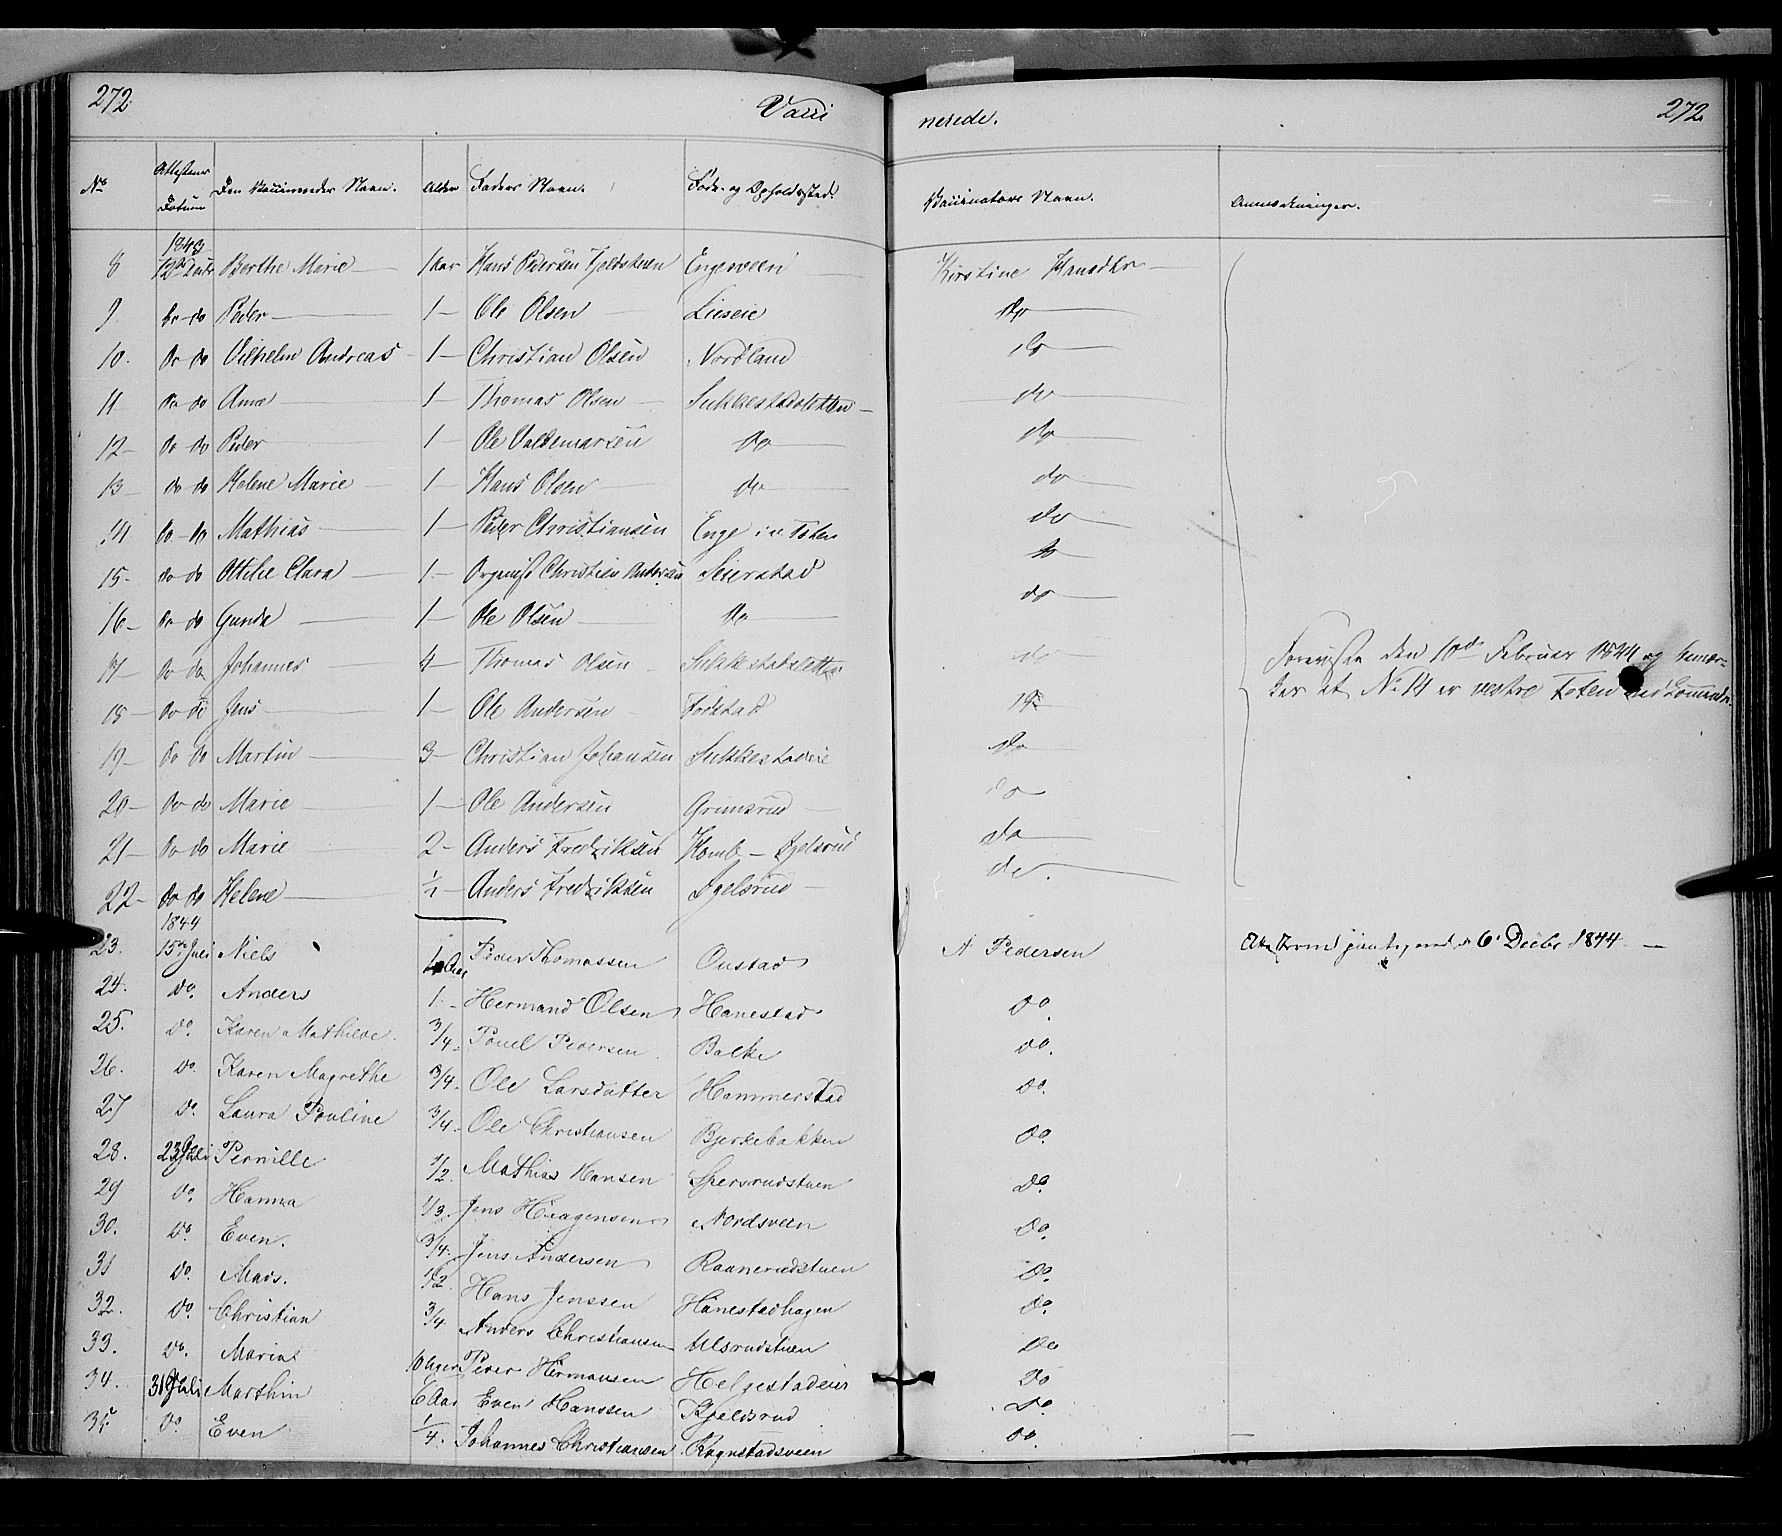 272 Vacci nerede. 272
No Attestens Datum Den Vaccineredes Navn. Alder Faders Navn. Føde- og Opholdssted. Vaccinators Navn. Anmærkninger.
1843
8 12te Decbr Berthe Marie 1 Aar Hans Pedersen Engeveen Kirstine Hansdtr
9 do do Peder 1 Ole Olsen Lieseie do
10. do do Vilhelm Andreas 1 Christian Olsen Nordland do
11 do do Anne 1 Thomas Olsen Sukkestadsletten do
12 do do Peder 1 Ole Valdemarsen do do
13 do do Helene Marie 1 Hans Olsen do do
14 do do Mathias 1 Peder Christiansen Enge i V Toten do
15 do do Ottilie Clara 1 Organist Christian Andersen Seierstad do
16 do do Gunda 1 Ole Olsen do do
17 do do Johannes 4 Thomas Olsen Sukkestadsletten do Foreviste den 10de Februar 1844 og bemær-
18 do do Jens 1 Ole Andersen do ker at No 14 er vestre Toten
19 do do Martin 3 Christian Johansen Sukkestadeie do
20 do do Marie 1 Ole Andersen Grimsrud do
21 do do Marie 2 Anders Fredriksen do
22 do do Helene 1/2 Anders Fredriksen do.
1844
23. 15de Juli Niels 1 Aar Peder Thomassen Onstad N Pedersen 6. Decbr 1844
24. do. Anders 1. Hermand Olsen Hanestad do.
25. do. Karen Mathilde. 3/4. Pouel Pedersen. Balke do.
26. do. Karen Magrethe 3/4. Ole Larsdatter Hammerstad do.
27 do. Laura Pouline 3/4. Ole Christiansen Bjerkebakken do.
28. 23 Juli Pernille 1/2 Mathias Hansen Spersrudstuen do.
29 do. Hanna 1/3. Jens Haagensen Nordsveen do.
30. do. Even. 3/4. Jens Andersen Raanerudstuen do.
31 do. Mads. 1/2. Hans Jenssen Hanestadhagen do.
32. do. Christian 3/4 Anders Christiansen Ulsrudstuen do
33. do. Maria 10 Uger Peder Hermansen Helgestadeier do
34. 31 Juli Marthin 6 Aar Even Hanssen Kjeldsrud do.
35. do. Even 1/4. Johannes Christiansen Rognstadsveen do.